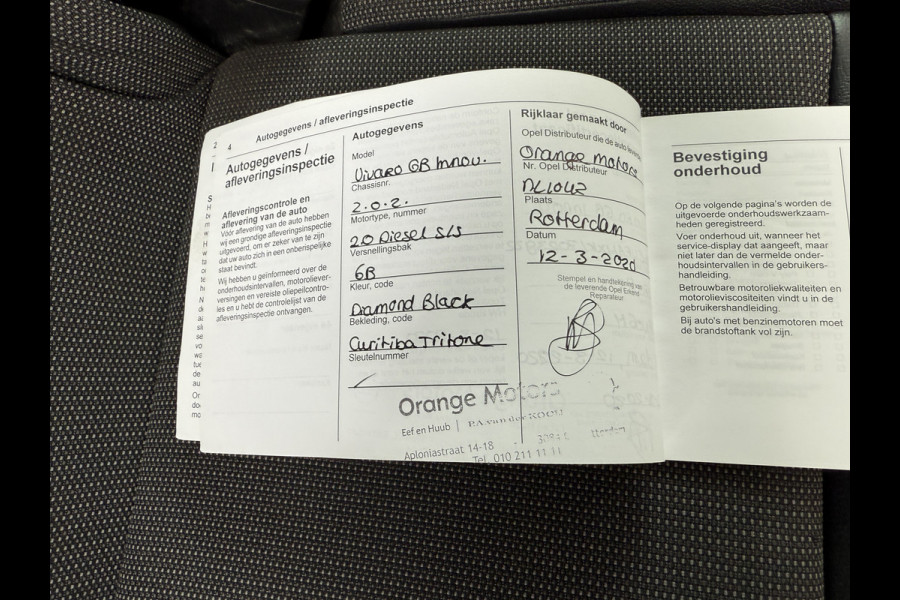 2
4
Autogegevens / afleveringsinspectie
Autogegevens /
afleveringsinspectie
Afleveringscontrole en
aflevering van de auto
Vóór aflevering van de auto hebben
wij een grondige afleveringsinspectie
uitgevoerd, om er zeker van te zijn
dat uw auto zich in een onberispelijke
staat bevindt.
Wij hebben u geïnformeerd over de
onderhoudsintervallen, motoroliever-
versingen en vereiste oliepeilcontro-
les en u hebt de controlelijst van de
afleveringsinspectie ontvangen.
Autogegevens
Model
Vivaro GB Innov.
Chassisnr.
2.0.2.
Motortype, nummer
2.0 Diesel S/S
Versnellingsbak
6B
Kleur, code
Diamond Black
Bekleding, code
Curitiba Tritone
Sleutelnummer
Rijklaar gemaakt door
Opel Distributeur die de auto
Orange motors
Nr. Opel Distributeur
DL1042
Plaats
Rotterdam
Datum
12-3-2020
Stempel en handtekening van
de leverende Opel Erkend
Reparateur
Orange Motors
Eef en Huub |
Aploniastraat 14-18
Tel. 010 211 11 11
Bevestiging
onderhoud
Op de volgende pagina's worden de
uitgevoerde onderhoudswerkzaam-
heden geregistreerd.
Voer onderhoud uit, wanneer het
service-display dat aangeeft, maar
niet later dan de vermelde onder-
houdsintervallen in de gebruikers-
handleiding.
Betrouwbare motoroliekwaliteiten en
motorolieviscositeiten vindt u in de
gebruikershandleiding.
Bij auto's met benzinemotoren moet
de brandstoftank vol zijn.